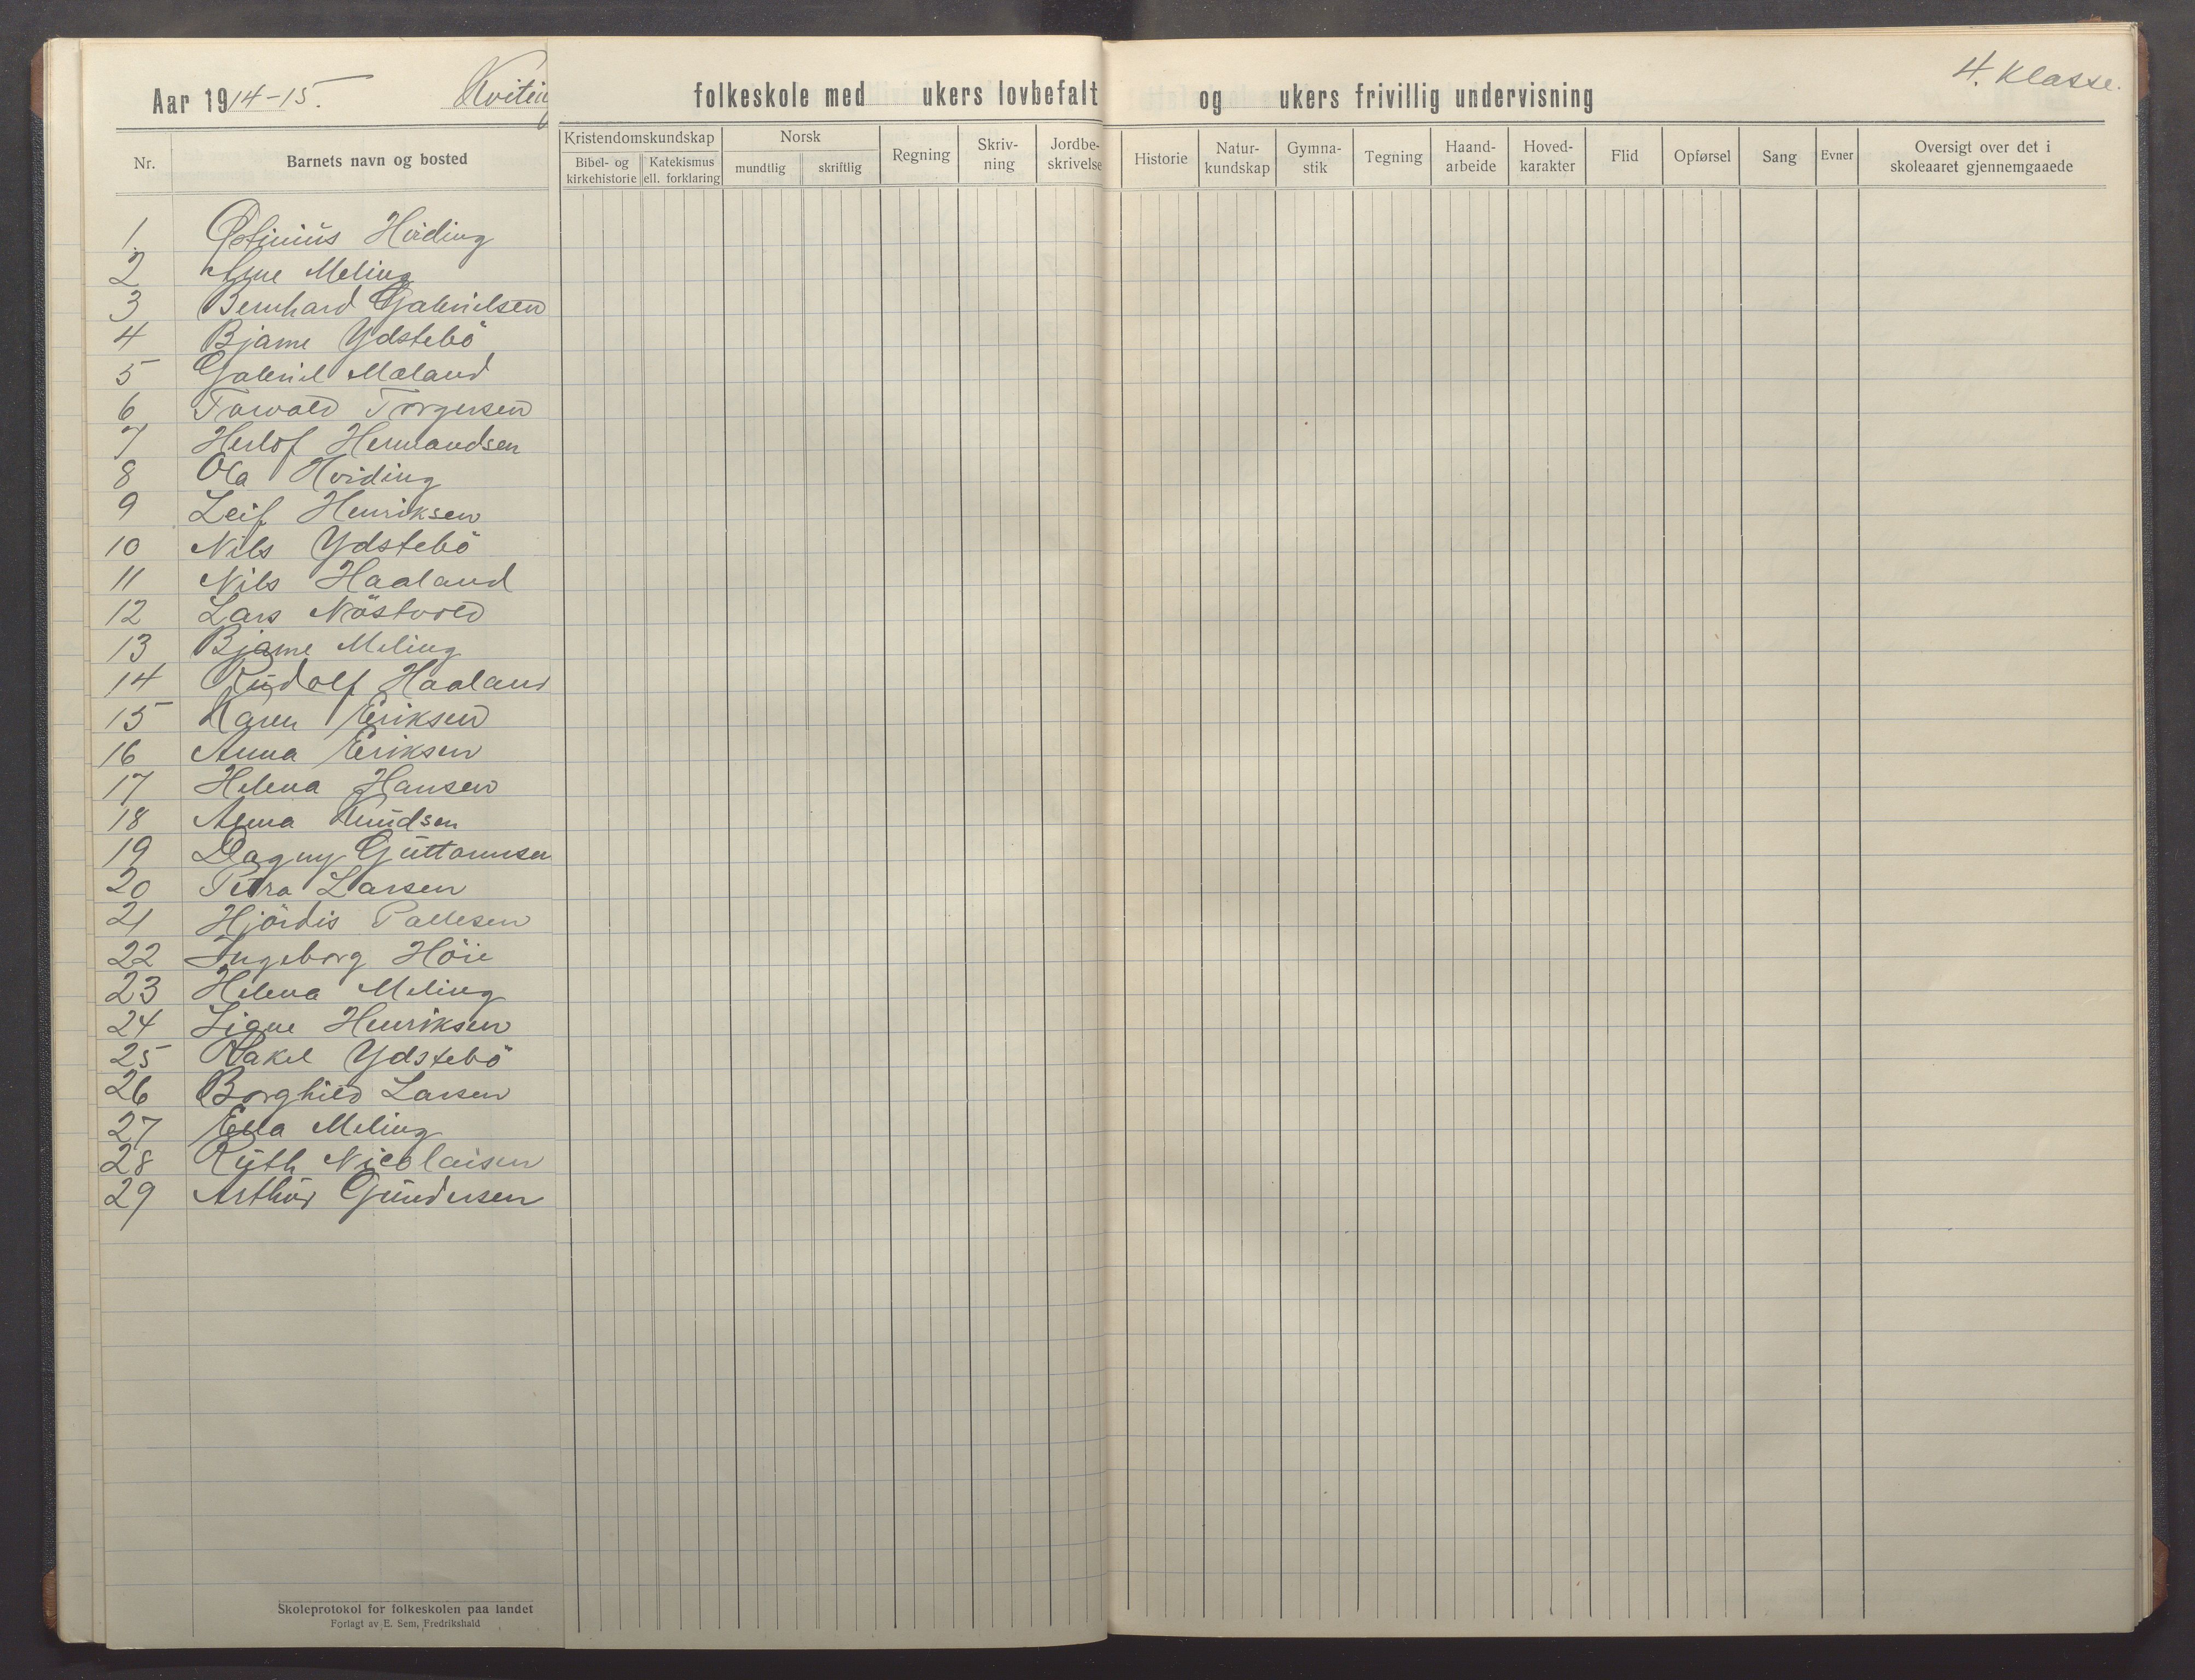 Aar 1914-15. Kviting folkeskole med ukers lovbefalt og ukers frivillig undervisning 4. Klasse.
Nr. Barnets navn og bosted Kristendomskundskap Bibel- og kirkehistorie Katekismus ell. forklaring Norsk mundtlig skriftlig Regning Skriv-ning Jordbe-skrivelse Historie Natur-kundskap Gymna-stik Tegning Haand-arbeide Hoved-karakter Flid Opførsel Sang Evner Oversigt over det i skoleaaret gjennemgaaede
1 Hviding
2 Arne Meling
3 Bernhard Gabrielsen
4 Bjarne Ydstebö
5 Gabriel Maland
6 Torvald Torgersen
7 Herlof Hermandsen
8 Ola Hviding
9 Leif Henriksen
10 Nils Ydstebö
11 Nils Haaland
12 Lars Nöstvold
13 Bjarne Meling
14 Rudolf Haaland
15 Karen Eriksen
16 Anna Eriksen
17 Helena Hansen
18 Anna Knudsen
19 Dagny Guttormsen
20 Petra Larsen
21 Hjördis Pallesen
22 Ingeborg Höie
23 Helena Meling
24 Signe Henriksen
25 Rakel Ydstebö
26 Borghild Larsen
27 Ella Meling
28 Ruth Nicolaisen
29 Arthur Gundersen
Skoleprotokol for folkeskolen paa landet
Forlagt av E. Sem, Fredrikshald